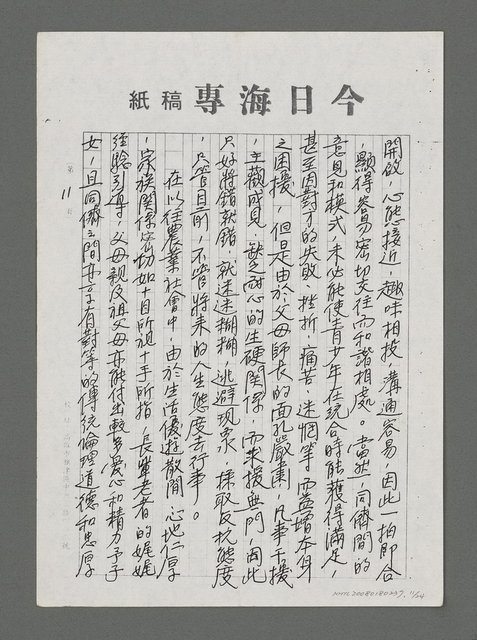 今日海專稿紙
開啟，心態接近，趣味相投，溝通容易，因此一拍即合
，顯得容易密切交往而和諧相處。當然，同儕間的
意見和模式，未必能使青少年在統合時能獲得滿足，
甚至因對方的失敗、挫折、痛苦、迷惘等而益增本身
之困擾，但是由於父母師長的面孔嚴肅，凡事干擾
，主觀成見，缺乏耐心的生硬關係，而求援無門，因此
只好將錯就錯，就迷迷糊糊，逃避現象，採取反抗態度
，只管目前，不管將來的人生態度去行事。
在以往農業社會中，由於生活優遊散閒，心地仁厚
，家族關係密切如十目所視十手所指，長輩老者的娓娓
經驗引導，父母親及祖父母亦能付出較多愛心和精力予子
女，且同儕之間亦享有對等的傳統倫理道德和忠厚
第 11 頁
NMTL20080180297, 11/24